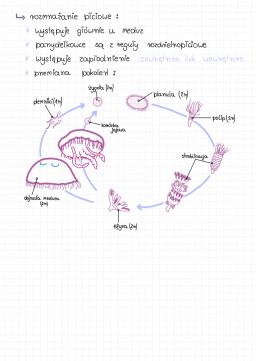 ↳ rozmnażanie płciowe:
występuje głównie u meduz
parzydełkowce są z reguły rozdzielnopłciowe
występuje zapłodnienie zewnętrzne lub wewnętrzne
przemiana pokoleń:
zygota (2n)
planula (2n)
plemniki (1n)
komórka jajowa
polip (2n)
strobilizacja
dojrzała meduza (2n)
efyra (2n)